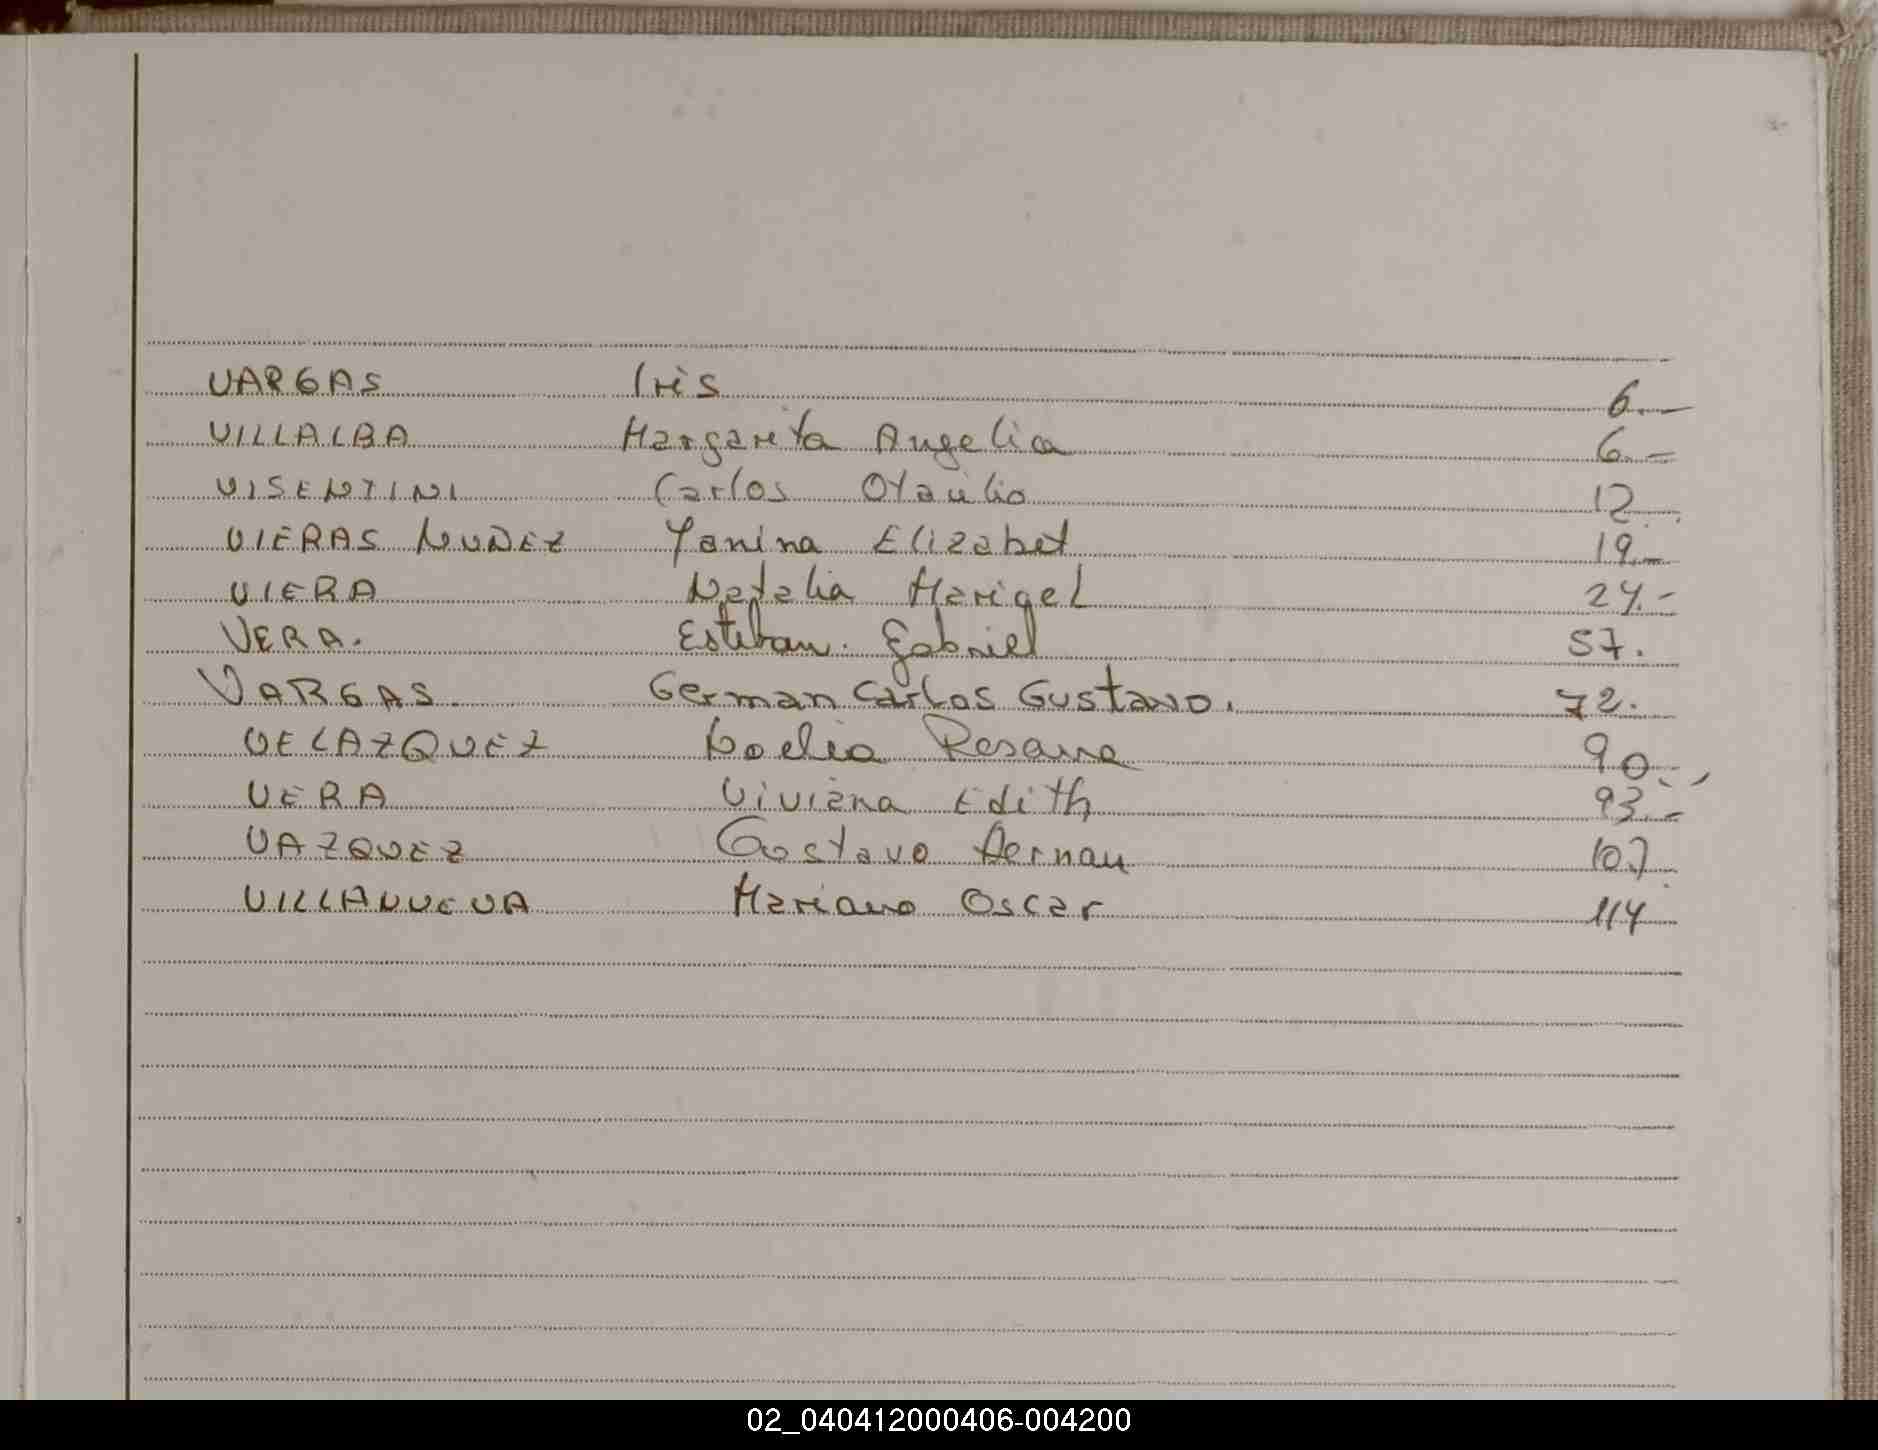 VARGAS Iris 6.—
VILLALBA Margarita Angelica 6.—
VISENTINI Carlos Otavilio 12.
VIERAS NUÑEZ Yanina Elizabet 19.—
VIERA Natalia Marigel 24.-
VERA. Esteban. Gabriel 57.
VARGAS. German Carlos Gustavo. 72.
VELAZQUEZ Noelia Rosana 90.-
VERA Viviana Edith 93.-
VAZQUEZ Gustavo Hernan 107
VILLANUEVA Mariano Oscar 114
02_040412000406-004200